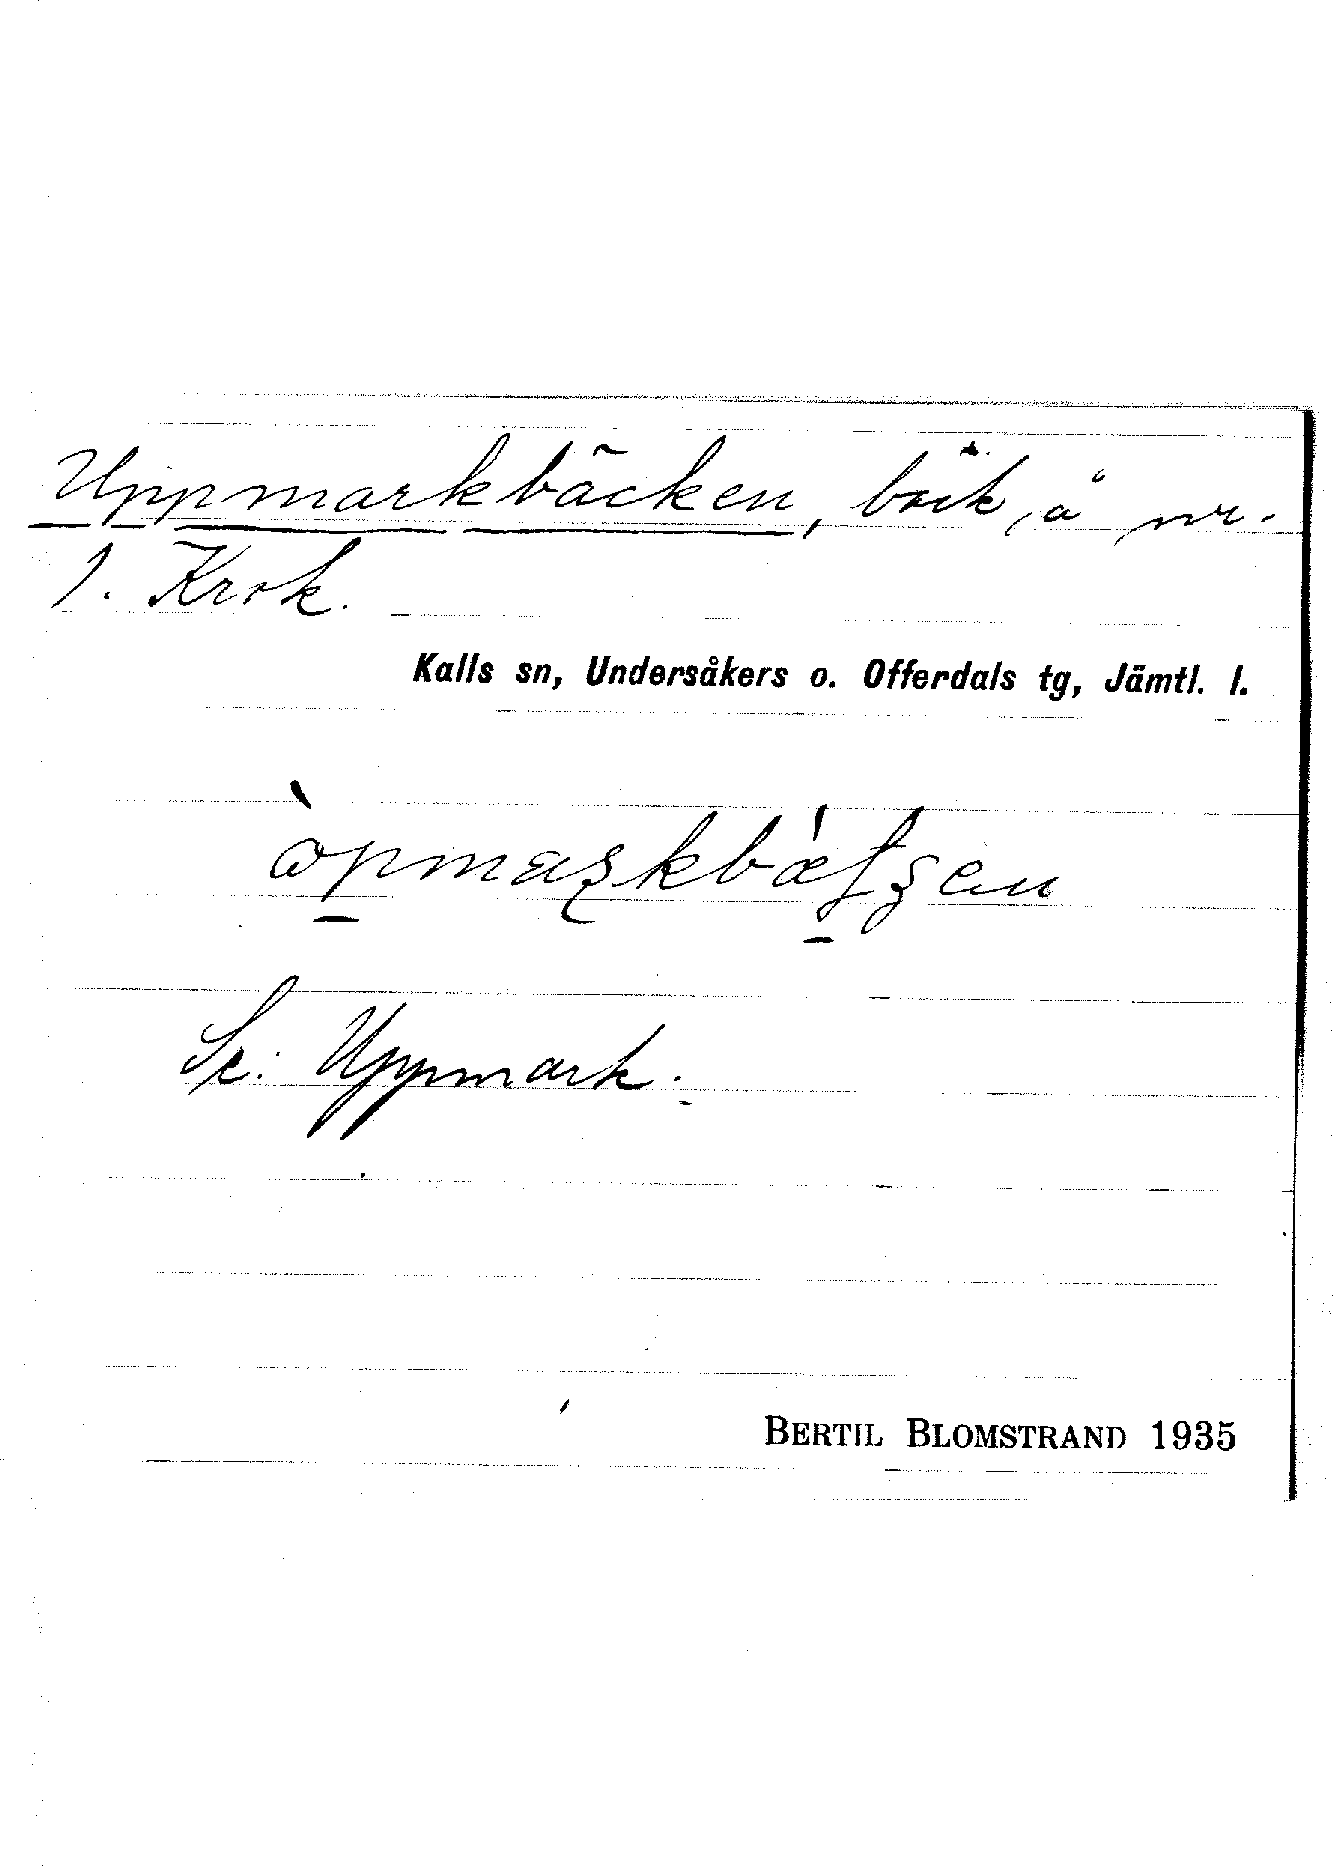 Uppmarkbäcken, bäck, å nr.
1. Krok.
Kalls sn, Undersåkers o. Offerdals tg, Jämtl. l.
Se: Uppmark.
BERTIL BLOMSTRAND 1935